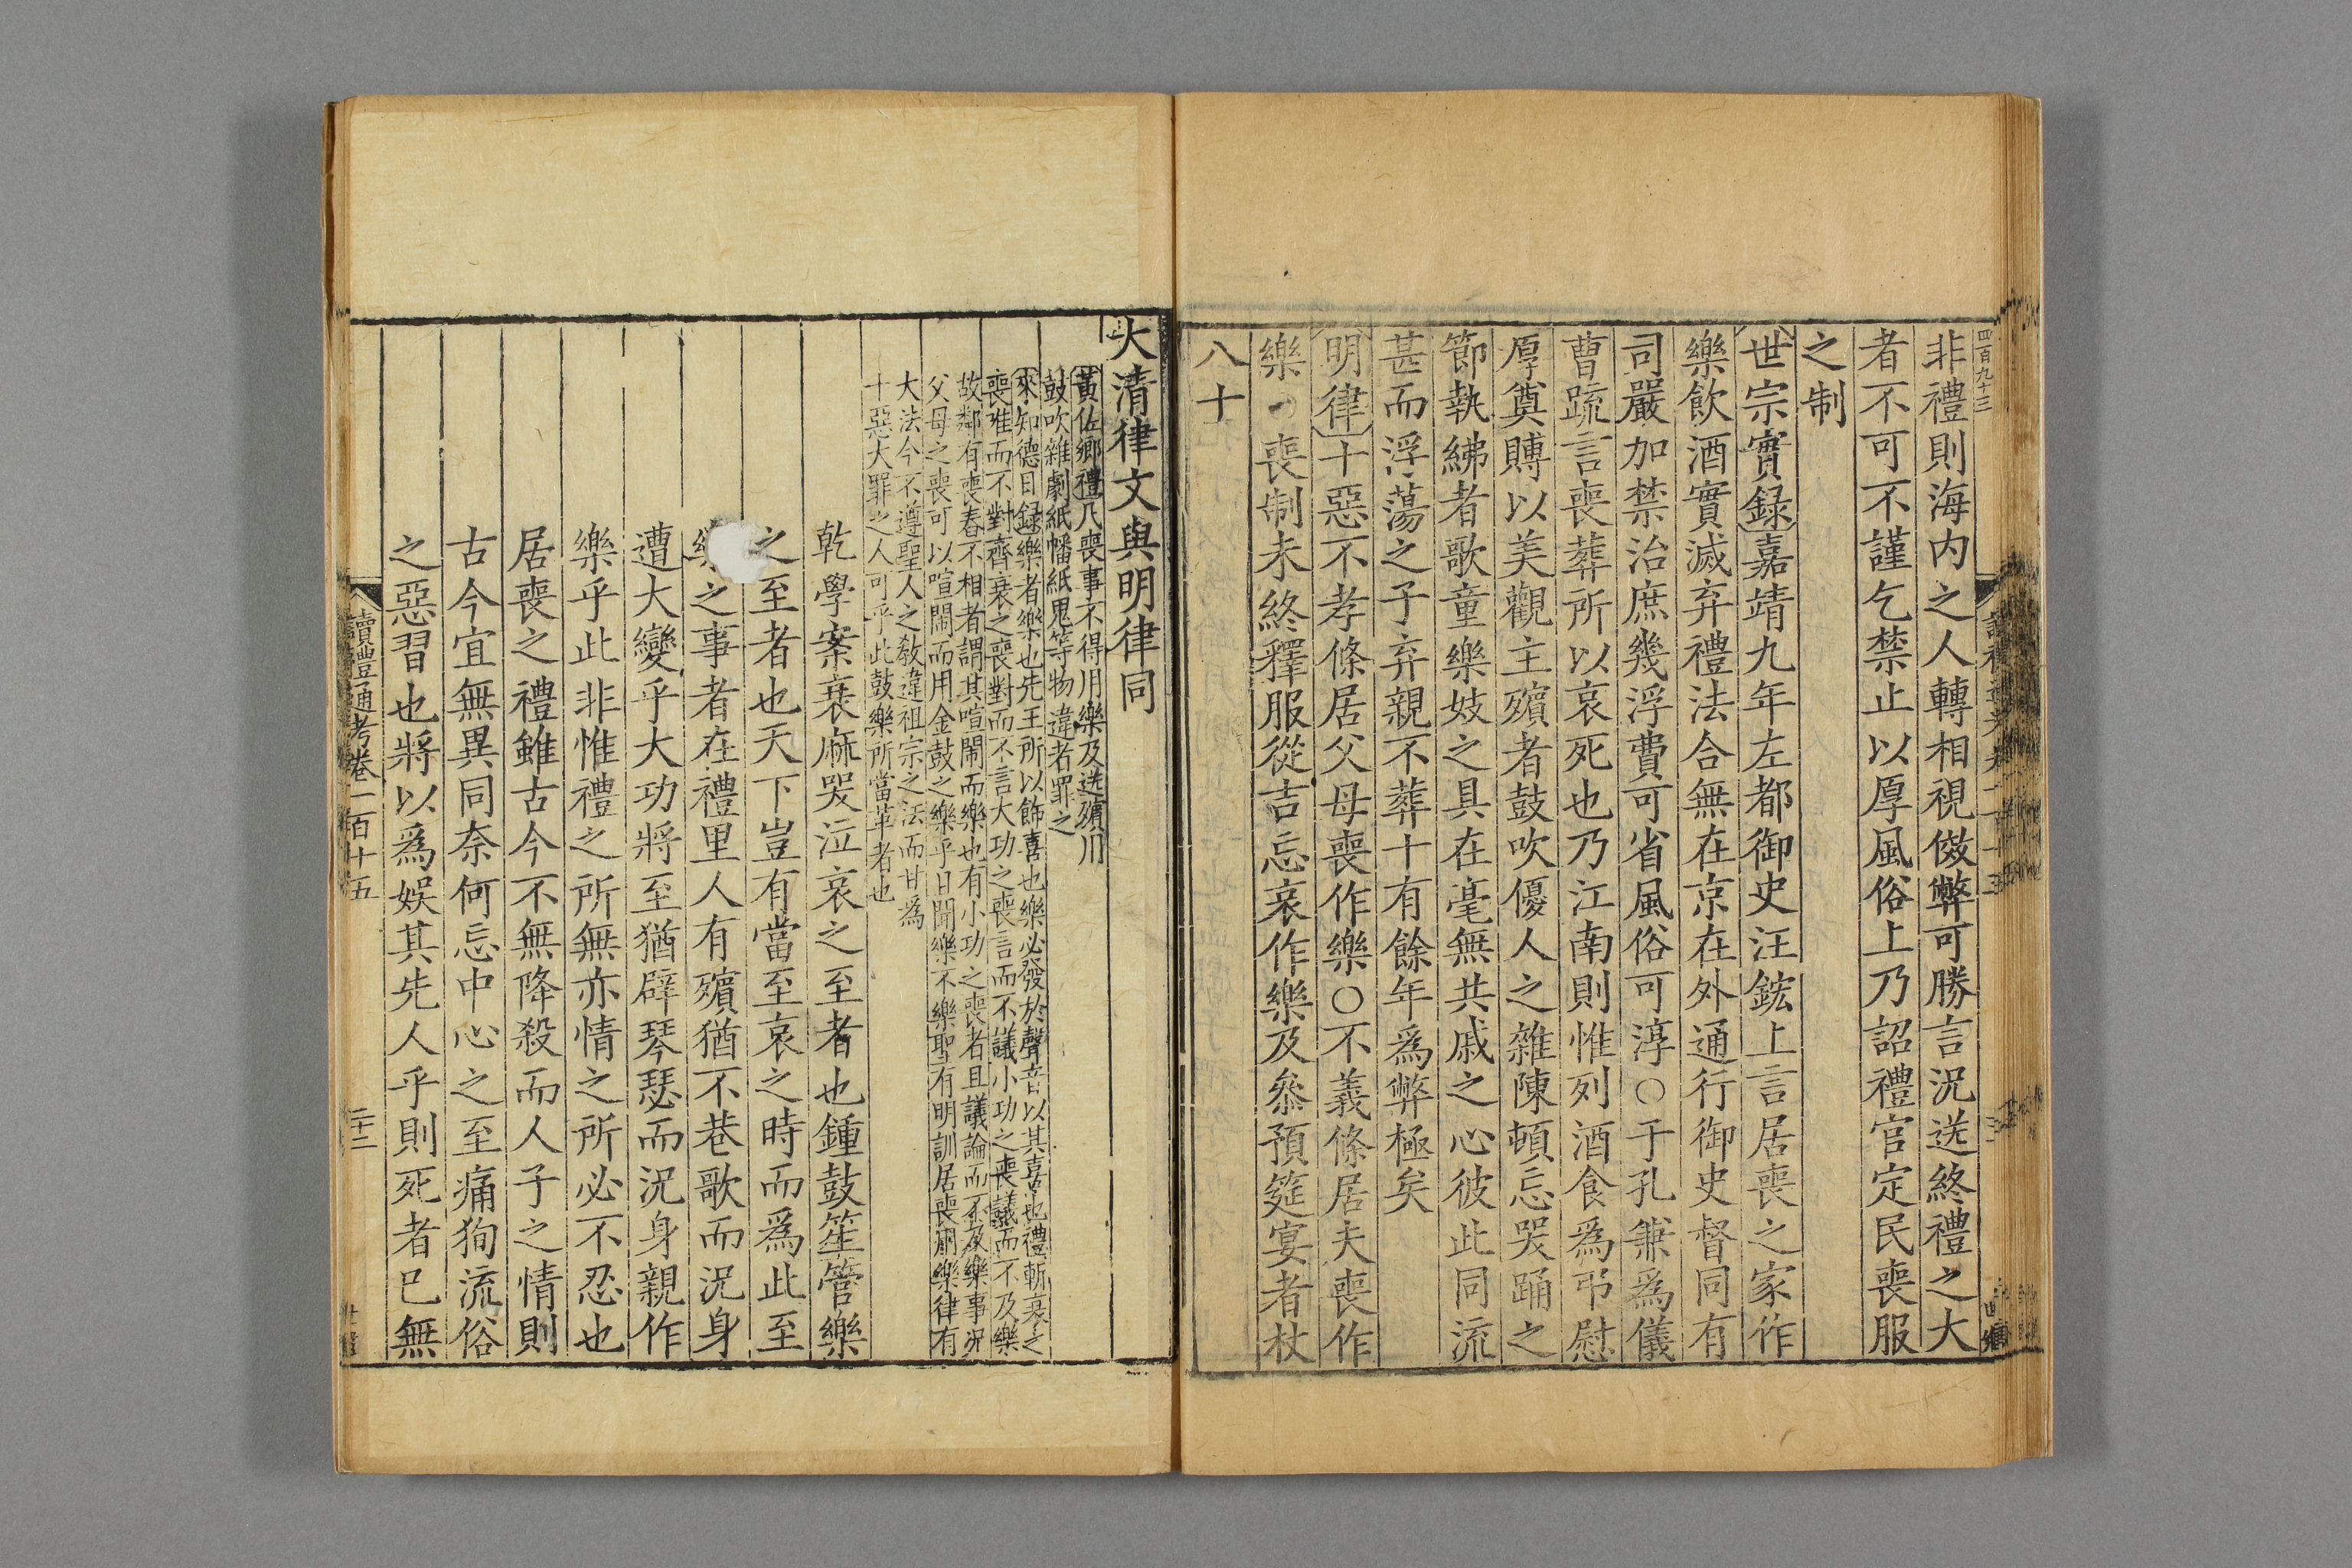 四百九十三
非禮則海内之人轉相視傚弊可勝言況送終禮之大
者不可不謹乞禁止以厚風俗上乃詔禮官定民喪服
之制
世宗實録嘉靖九年左都御史汪鋐上言居喪之家作
樂飲酒實滅弃禮法合無在京在外通行御史督同有
司嚴加禁治庶幾浮費可省風俗可淳○于孔兼為儀
曹疏言喪葬所以哀死也乃江南則惟列酒食為弔慰
厚奠賻以美觀主殯者鼓吹優人之雜陳頓忘哭踊之
節執紼者歌童樂妓之具在毫無共戚之心彼此同流
甚而浮蕩之子弃親不葬十有餘年爲弊極矣
明律十惡不孝條居父母喪作樂○不義條居夫喪作
樂 喪制未終釋服從吉忘哀作樂及叅預筵宴者杖
八十
大清律文與明律同
黃佐鄉禮凡喪事不得用樂及送殯用
鼓吹雜劇紙幡紙鬼等物違者罪之
來知德日録樂者樂也先王所以飾喜也樂必發於聲音以其喜也禮斬衰之
喪唯而不對齊衰之喪對而不言大功之喪言而不議小功之喪議而不及樂
故鄰有喪舂不相者謂其喧鬧而樂也有小功之喪者且議論而不及樂事況
父母之喪可以喧鬧而用金鼓之樂乎日聞樂不樂聖有明訓居喪用樂律有
大法今不遵聖人之教違祖宗之法而甘爲
十惡大罪之人可乎此鼓樂所當革者也
乾學案衰麻哭泣哀之至者也鍾鼓笙管樂
之至者也天下豈有當至哀之時而爲此至
之事者在禮里人有殯猶不巷歌而況身
遭大變乎大功將至猶辟琴瑟而況身親作
樂乎此非惟禮之所無亦情之所必不忍也
居喪之禮雖古今不無降殺而人子之情則
古今宜無異同奈何忘中心之至痛狥流俗
之惡習也將以爲娛其先人乎則死者已無
讀禮通考卷一百十五
二十二